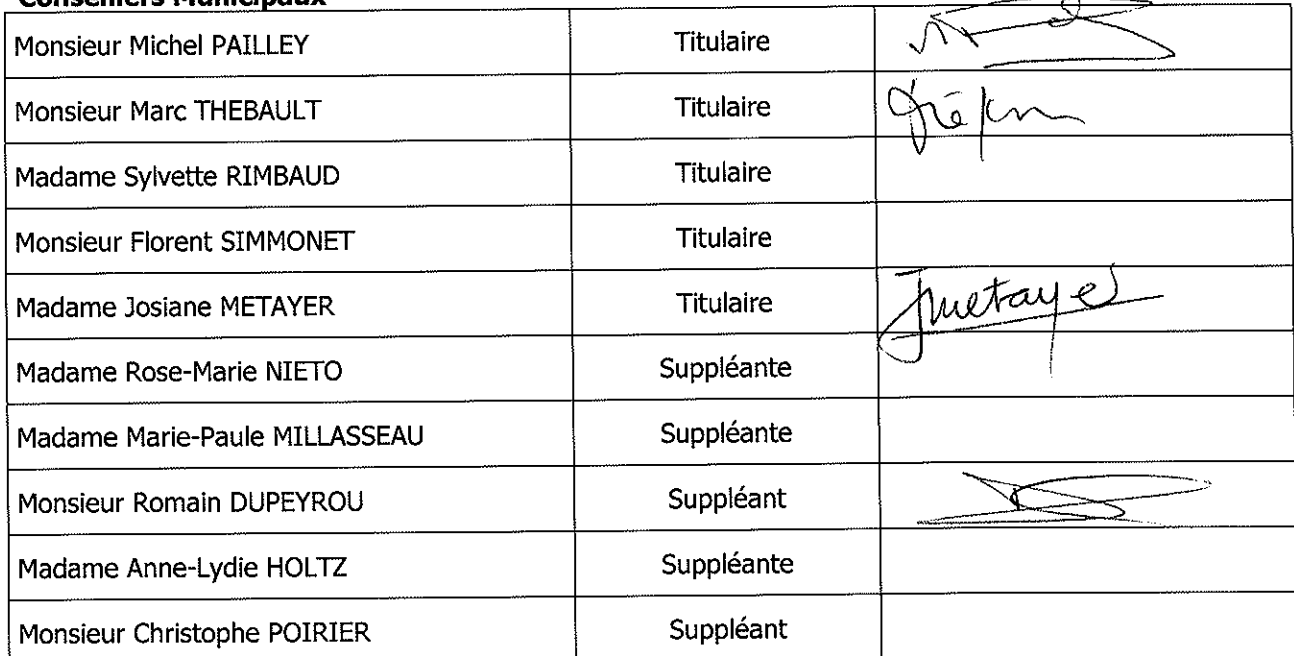 Conseillers Municipaux
Monsieur Michel PAILLEY Titulaire
Monsieur Marc THEBAULT Titulaire
Madame Sylvette RIMBAUD Titulaire
Monsieur Florent SIMMONET Titulaire
Madame Josiane METAYER Titulaire Jmetayer
Madame Rose-Marie NIETO Suppléante
Madame Marie-Paule MILLASSEAU Suppléante
Monsieur Romain DUPEYROU Suppléant
Madame Anne-Lydie HOLTZ Suppléante
Monsieur Christophe POIRIER Suppléant